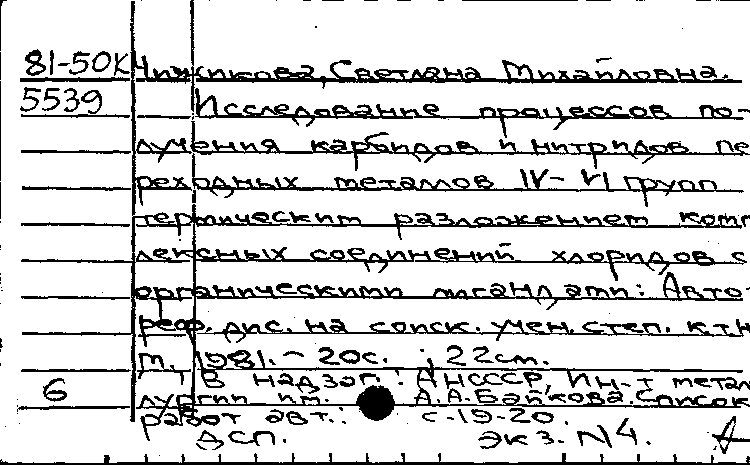 81-50К Чижикова, Светлана Михайловна.
5539 Исследование процессов по-
лучения карбидов и нитридов пе
реходных металлов IV-VI групп
термическим разложением комп
лексных соединений хлоридов с
органическими лигандами: Авто-
реф. дис. на соиск. учен. степ. к.т.н
м. 1981. - 20с. ; 22см.
В надзаг.: АНСССР, Ин-т метал
6 лургии им. А.А.Байкова. Список
работ авт.: с.19-20.
ДСП. экз. N4.